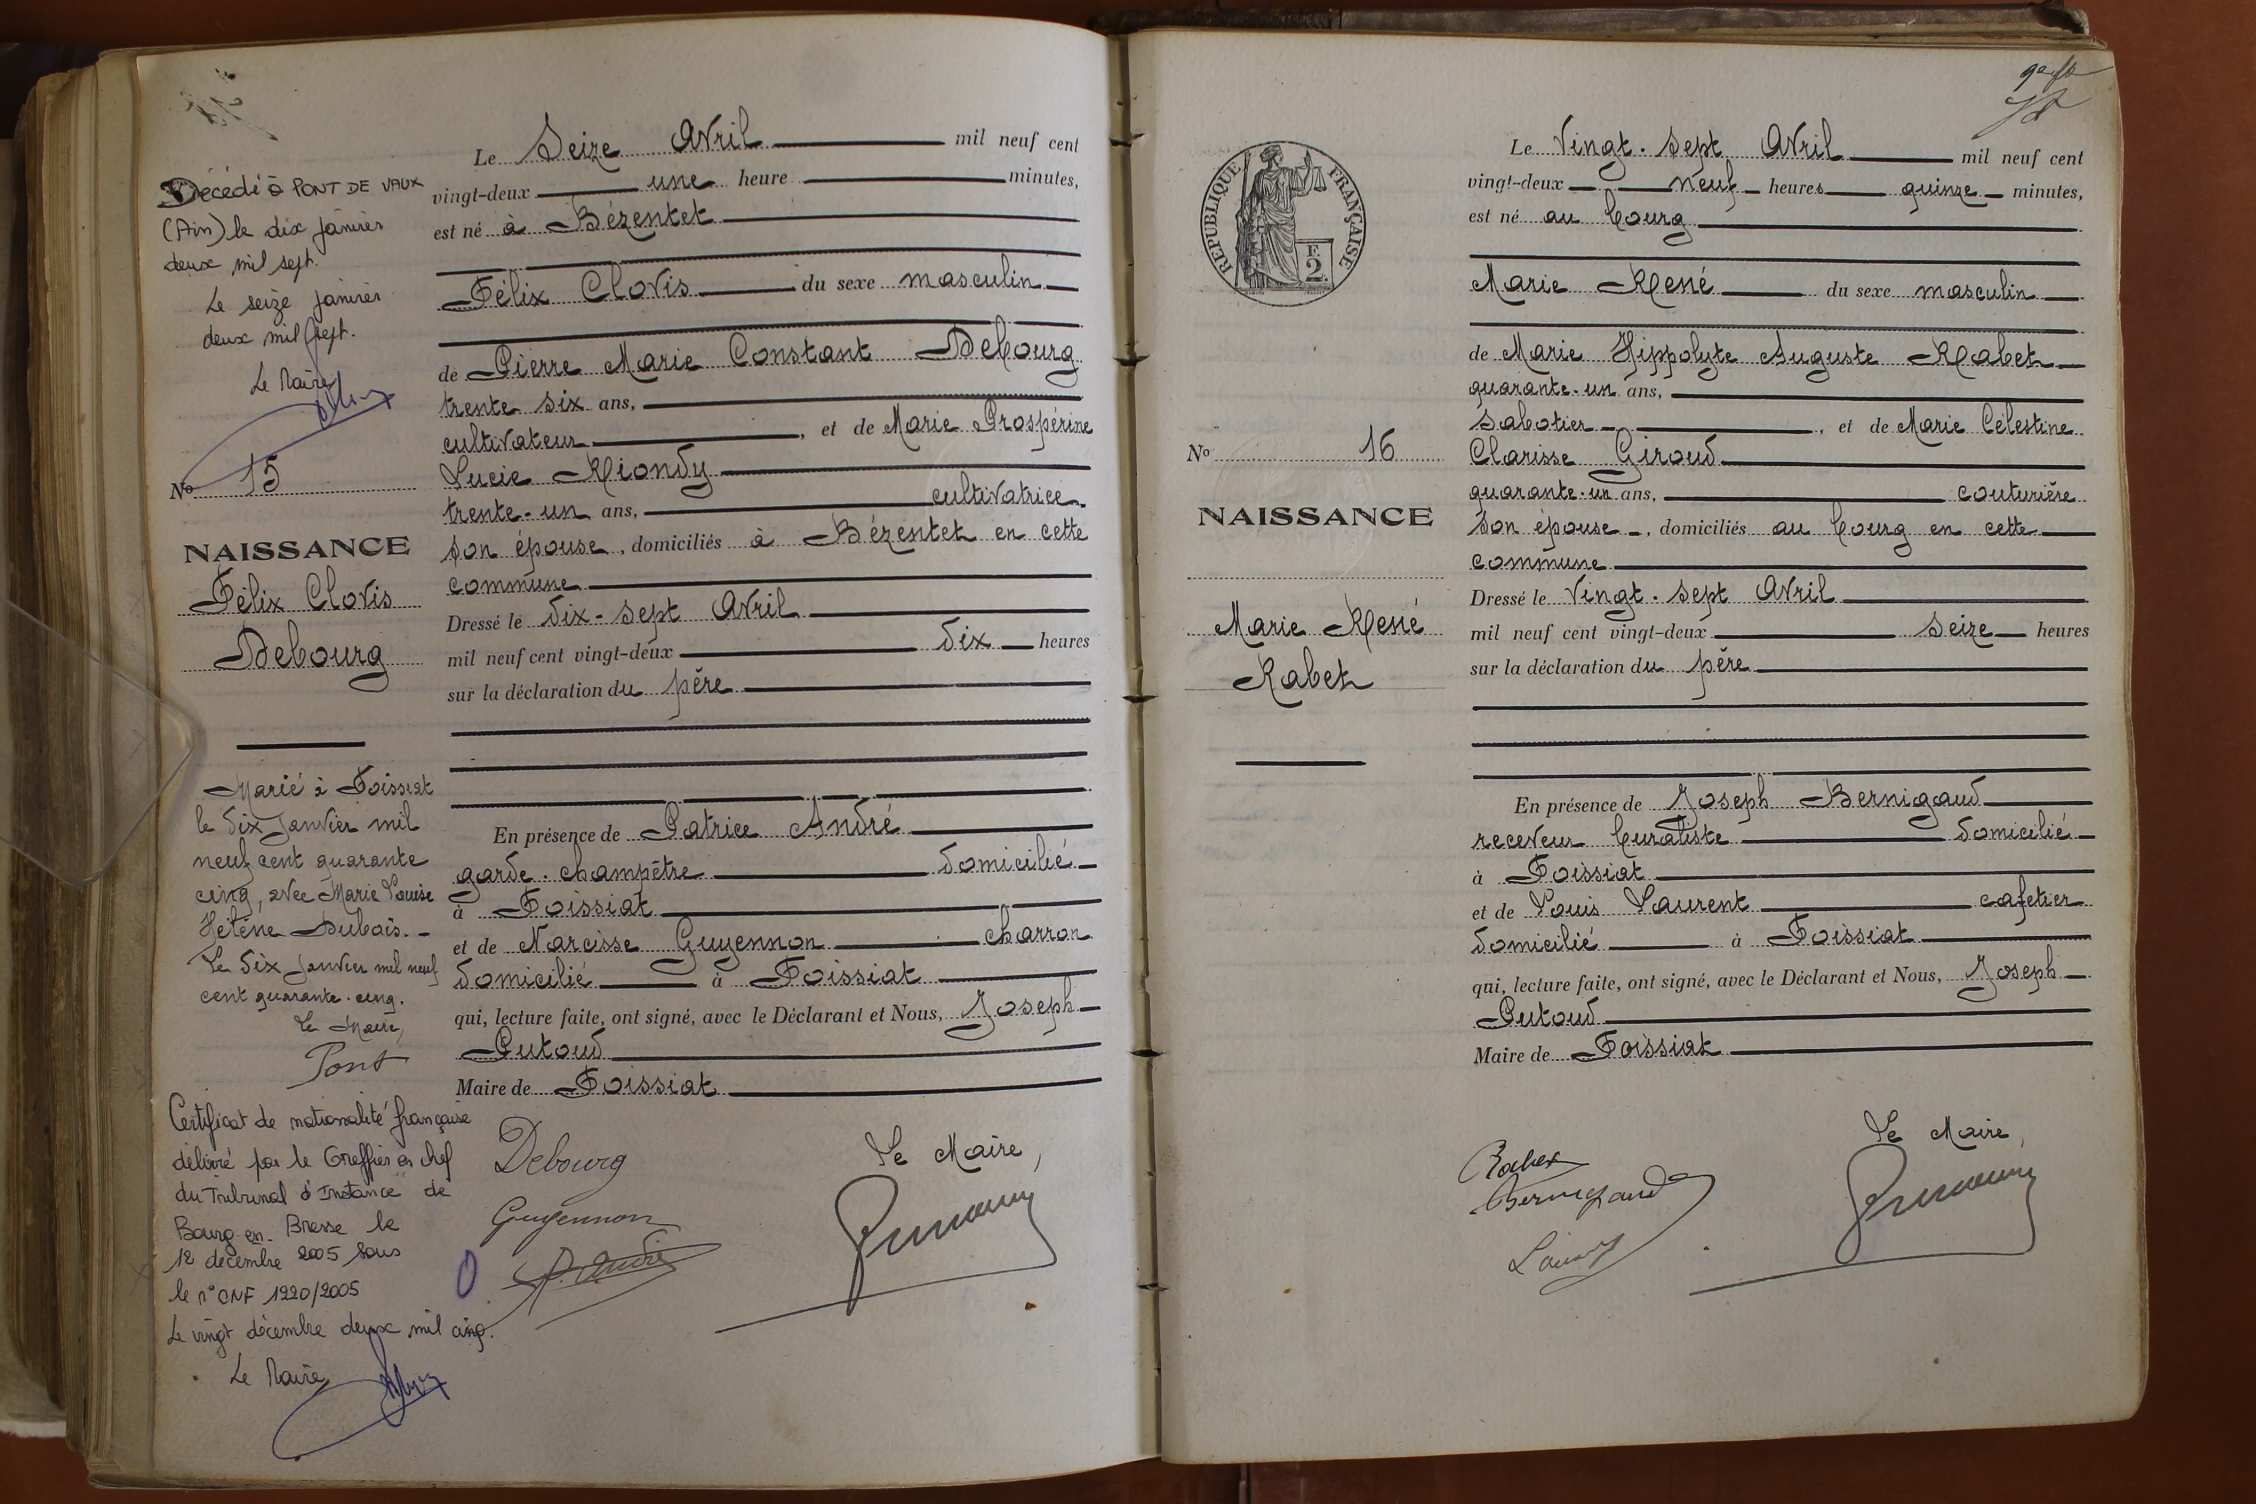 Le Seize Avril mil neuf cent
vingt-deux une heure minutes,
est né à Bézentet
Félix Clovis du sexe masculin
de Pierre Marie Constant Debourg
trente six ans,
cultivateur, et de Marie Prospérine
Lucie Riondy
trente-un ans, cultivatrice
son épouse, domiciliés à Bézentet en cette
commune
Dressé le dix-sept Avril
mil neuf cent vingt-deux dix heures
sur la déclaration du père
En présence de Patrice André
garde-champêtre domicilié
à Foissiat
et de Narcisse Guyennon charron
domicilié à Foissiat
qui, lecture faite, ont signé, avec le Déclarant et Nous, Joseph
Putoud
Maire de Foissiat
Debourg
Le Maire,
Guyennon
P. André
Décédé à PONT DE VAUX
(Ain) le dix janvier
deux mil sept.
Le seize janvier
deux mil sept.
Le Maire
No 15
NAISSANCE
Félix Clovis
Debourg
Marié à Foissiat
le dix Janvier mil
neuf cent quarante
cinq, avec Marie Louise
Hélène Dubois.
Le dix Janvier mil neuf
cent quarante-cinq.
Le Maire,
Pont
Certificat de nationalité française
délivré par le Greffier en chef
du Tribunal d'Instance de
Bourg-en-Bresse le
12 décembre 2005 sous
le n° CNF 1220/2005
Le vingt décembre deux mil cinq.
Le Maire
REPUBLIQUE FRANÇAISE
F.
2
No 16
NAISSANCE
Marie René
Rabet
Le Vingt-sept Avril mil neuf cent
vingt-deux neuf heures quinze minutes,
est né au bourg
Marie René du sexe masculin
de Marie Hippolyte Auguste Rabet
quarante-un ans,
sabotier, et de Marie Célestine
Clarisse Giroud
quarante-un ans, couturière
son épouse, domiciliés au bourg en cette
commune
Dressé le Vingt-sept Avril
mil neuf cent vingt-deux seize heures
sur la déclaration du père
En présence de Joseph Bernigaud
receveur buraliste domicilié
à Foissiat
et de Louis Laurent cafetier
domicilié à Foissiat
qui, lecture faite, ont signé, avec le Déclarant et Nous, Joseph
Putoud
Maire de Foissiat
Le Maire,
Rabet
Bernigaud